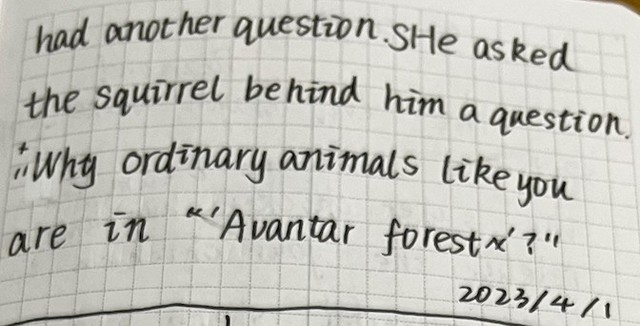 had another question. SHe asked
the squirrel behind him a question.
"Why ordinary animals like you
are in "'Avantar forest'?"
2023/4/1